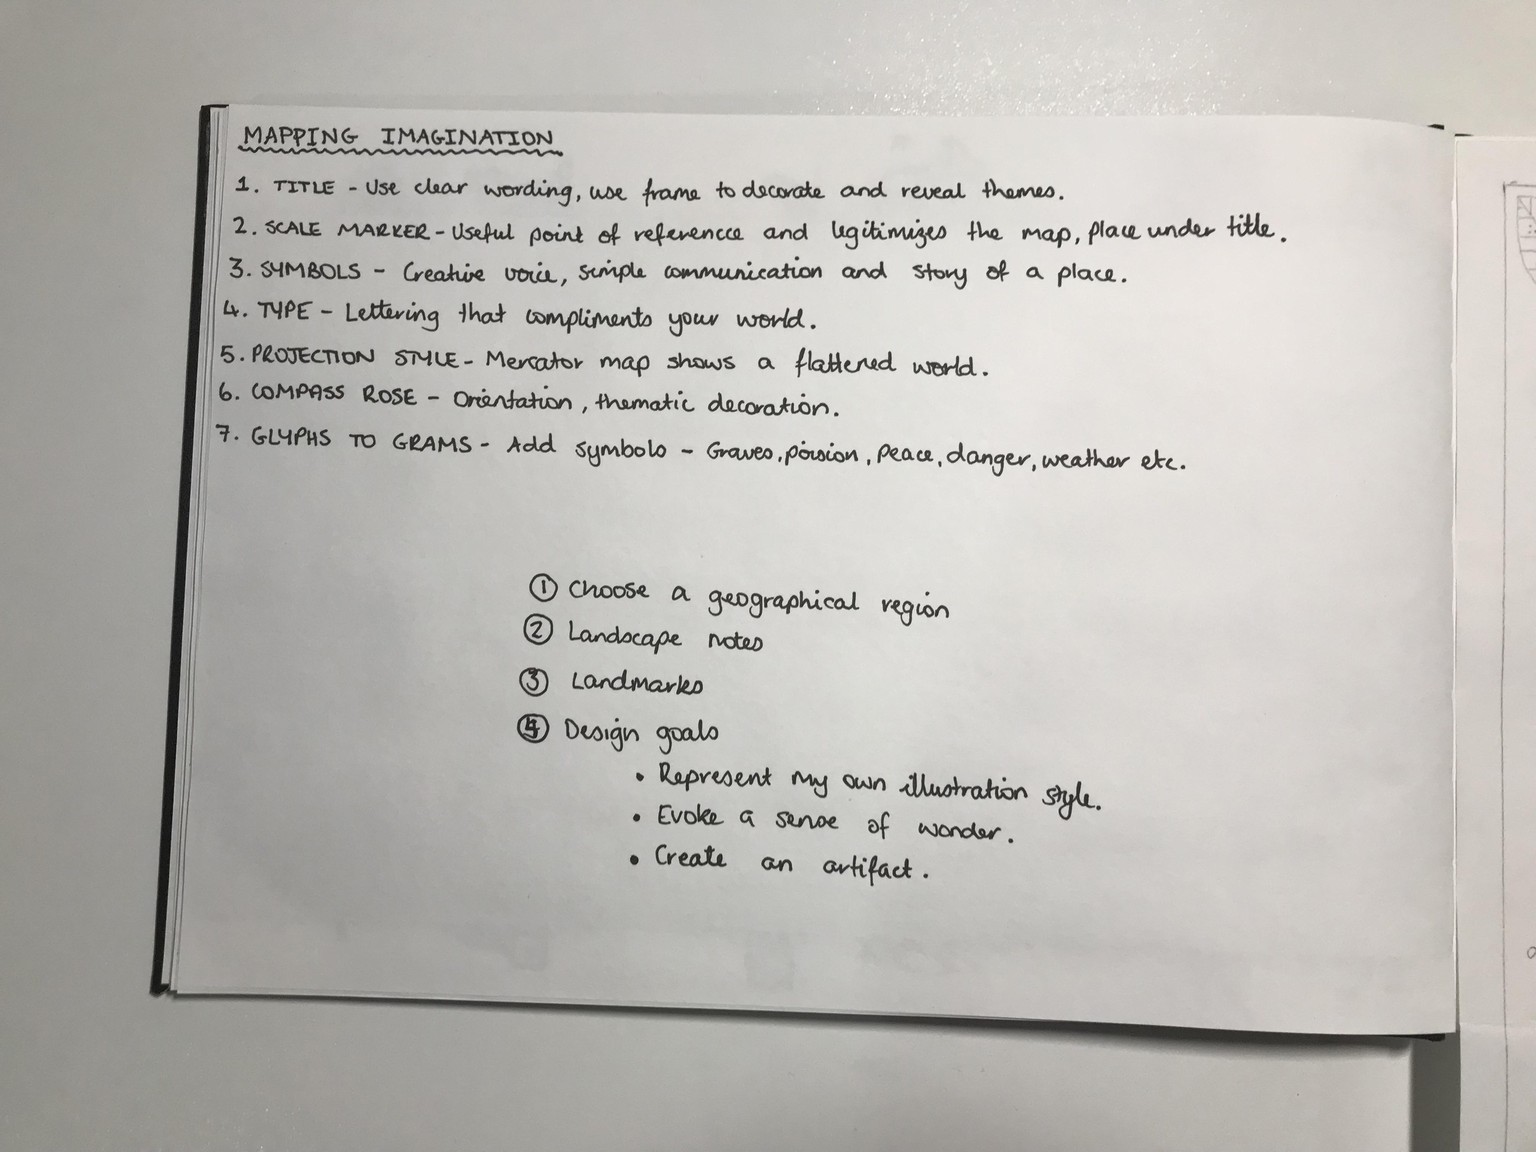 MAPPING IMAGINATION
1. TITLE - Use clear wording, use frame to decorate and reveal themes.
2. SCALE MARKER - Useful point of referencce and legitimizes the map, place under title.
3. SYMBOLS - Creative voice, simple communication and story of a place.
4. TYPE - Lettering that compliments your world.
5. PROJECTION STYLE - Mercator map shows a flattened world.
6. COMPASS ROSE - Orientation, thematic decoration.
7. GLYPHS TO GRAMS - Add symbols - Graves, poision, peace, danger, weather etc.
① Choose a geographical region
② Landscape notes
③ Landmarks
④ Design goals
• Represent my own illustration style.
• Evoke a sense of wonder.
• Create an artifact.